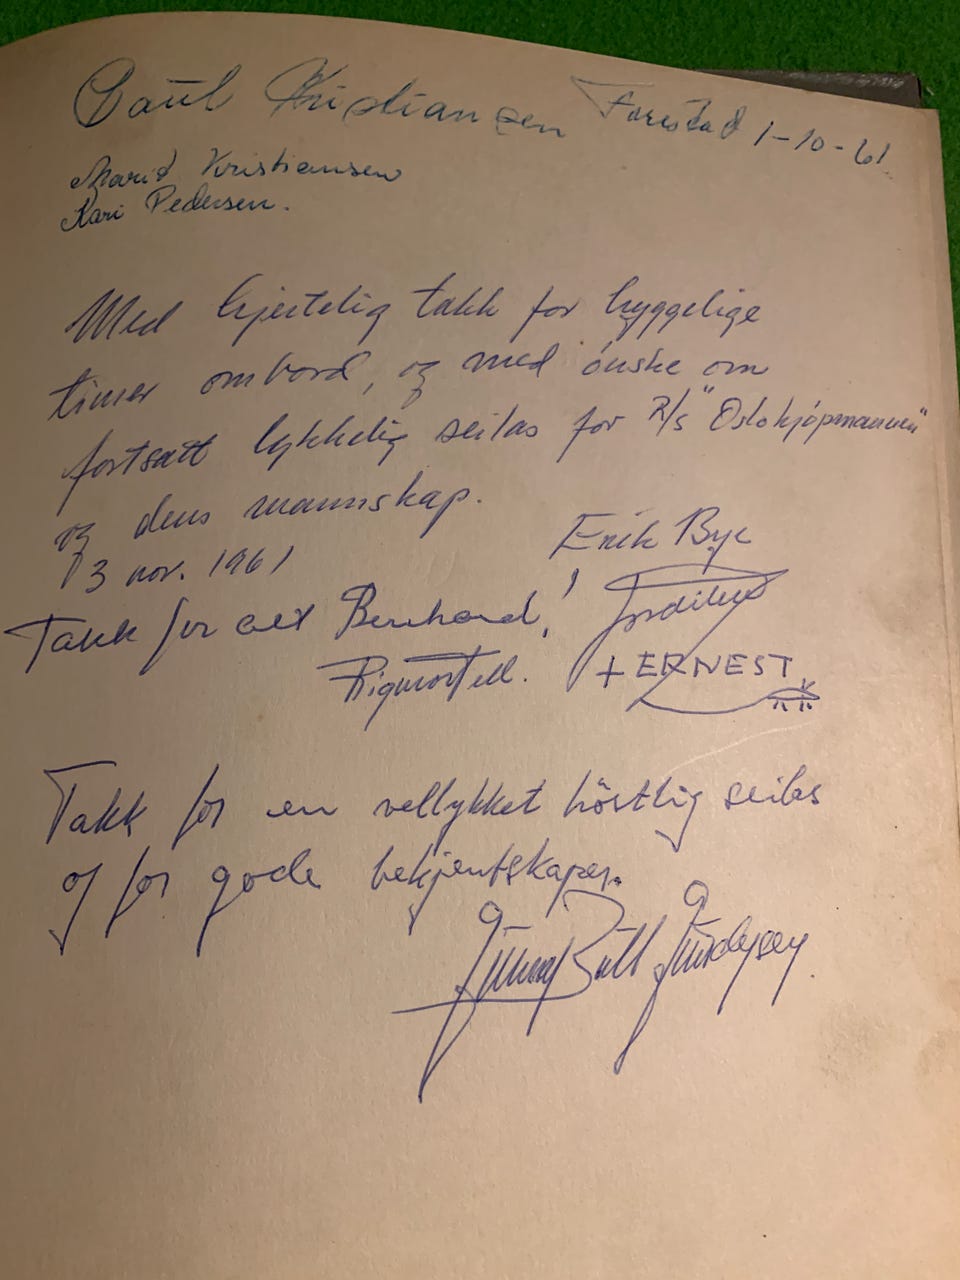 Paul Kristiansen Farestad 1-10-61
Marid Kristiansen
Kari Pedersen.
Med hjertelig takk for hyggelige
timer ombord, og med ønske om
fortsatt lykkelig seilas for R/S "Oslokjøpmannen"
og dens mannskap.
13 nov. 1961
Erik Bye
Takk for alt Bernhard!
+ ERNEST
Takk for en vellykket höstlig seilas
og for gode bekjentskaper.
Bull